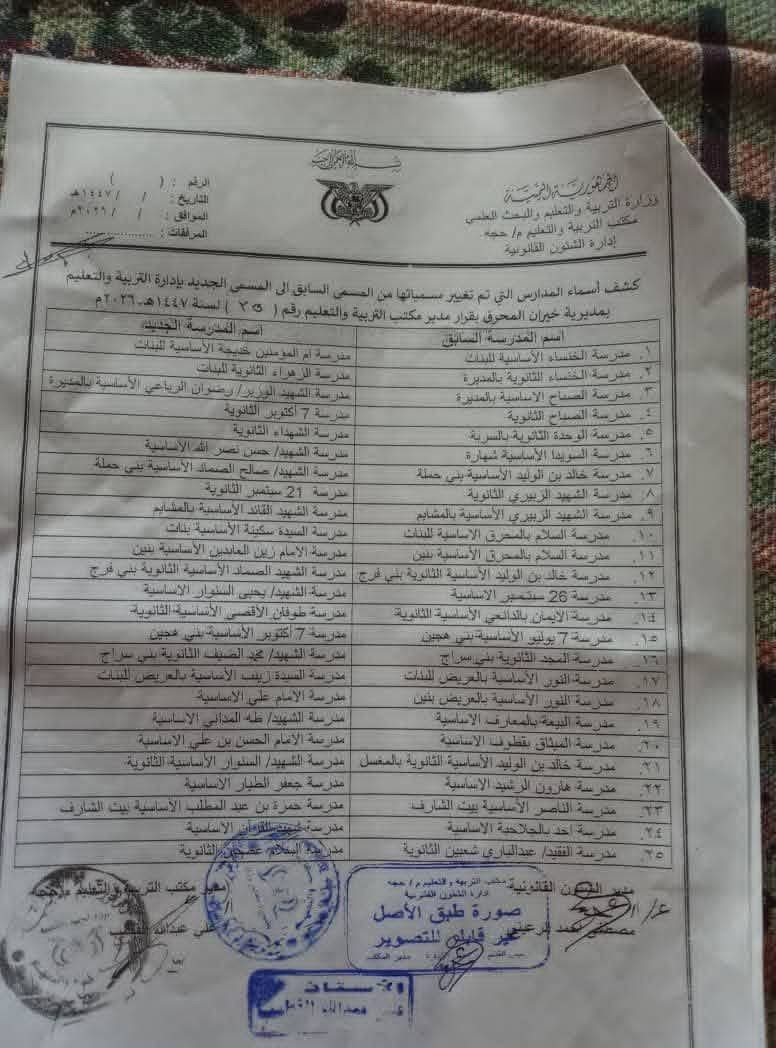 الجمهورية اليمنية
وزارة التربية والتعليم والبحث العلمي
مكتب التربية والتعليم م/ حجه
إدارة الشئون القانونية
الرقم : ( )
التاريخ : / / ١٤٤٧هـ
الموافق : / / ٢٠٢٦م
المرفقات: ..................
كشف أسماء المدارس التي تم تغيير مسمياتها من المسمى السابق الى المسمى الجديد بإدارة التربية والتعليم
بمديرية خيران المحرق بقرار مدير مكتب التربية والتعليم رقم ( ) لسنة ١٤٤٧هـ ـ ٢٠٢٦م
اسم المدرسة السابق اسم المدرسة الجديد
١. مدرسة الخنساء الأساسية للبنات مدرسة ام المؤمنين خديجة الأساسية للبنات
٢. مدرسة الخنساء الثانوية بالمديرة مدرسة الزهراء الثانوية للبنات
٣. مدرسة الصباح الاساسية بالمديرة مدرسة الشهيد الوزير/ رضوان الرباعي الأساسية بالمديرة
٤. مدرسة الصباح الثانوية مدرسة 7 أكتوبر الثانوية
٥. مدرسة الوحدة الثانوية بالسرية مدرسة الشهداء الثانوية
٦. مدرسة السويدا الأساسية شهارة مدرسة الشهيد/ حسن نصر الله الأساسية
٧. مدرسة خالد بن الوليد الأساسية بني حملة مدرسة الشهيد/ صالح الصماد الأساسية بني حملة
٨. مدرسة الشهيد الزبيري الثانوية مدرسة 21 سبتمبر الثانوية
٩. مدرسة الشهيد الزبيري الأساسية بالمشايم مدرسة الشهيد القائد الأساسية بالمشايم
١٠. مدرسة السلام بالمحرق الاساسية للبنات مدرسة السيدة سكينة الأساسية بنات
١١. مدرسة السلام بالمحرق الأساسية بنين مدرسة الامام زين العابدين الأساسية بنين
١٢. مدرسة خالد بن الوليد الأساسية الثانوية بني فرج مدرسة الشهيد الصماد الأساسية الثانوية بني فرج
١٣. مدرسة 26 سبتمبر الاساسية مدرسة الشهيد/ يحيى السنوار الاساسية
١٤. مدرسة الإيمان بالدانعي الأساسية الثانوية مدرسة طوفان الأقصى الأساسية الثانوية
١٥. مدرسة 7 يوليو الأساسية بني هجين مدرسة 7 أكتوبر الأساسية بني هجين
١٦. مدرسة المجد الثانوية بني سراج مدرسة الشهيد/ محمد الضيف الثانوية بني سراج
١٧. مدرسة النور الأساسية بالعريض للبنات مدرسة السيدة زينب الأساسية بالعريض للبنات
١٨. مدرسة النور الأساسية بالعريض بنين مدرسة الامام علي الاساسية
١٩. مدرسة البيعة بالمعارف الاساسية مدرسة الشهيد/ طه المداني الاساسية
٢٠. مدرسة الميثاق بقطوف الاساسية مدرسة الامام الحسن بن علي الأساسية
٢١. مدرسة خالد بن الوليد الأساسية الثانوية بالمغسل مدرسة الشهيد/ السنوار الأساسية الثانوية
٢٢. مدرسة هارون الرشيد الاساسية مدرسة جعفر الطيار الاساسية
٢٣. مدرسة الناصر الأساسية بيت الشارف مدرسة حمزة بن عبد المطلب الأساسية بيت الشارف
٢٤. مدرسة احد بالجلاحية الاساسية القرآن الأساسية
٢٥. مدرسة الفقيد/ عبدالباري شعبين الثانوية مدرسة السلام الثانوية
مدير الشئون القانونية مدير مكتب التربية والتعليم
مكتب التربية والتعليم م/ حجه
إدارة الشئون القانونية
صورة طبق الأصل
غير قابلة للتصوير